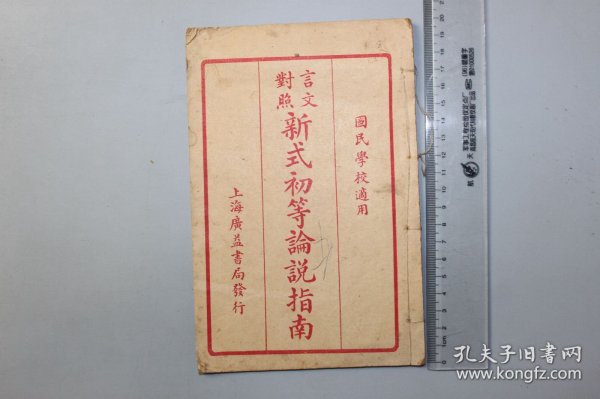 國民學校適用
言文
對照
新式初等論說指南
上海廣益書局發行
孔夫子旧书网
www.kongfz.com